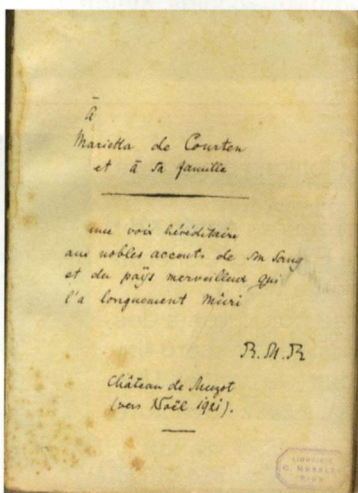 à
Marietta de Courten
et à sa famille
une voix héréditaire
aux nobles accents de son Sang
et du pays merveilleux qui
l'a longuement mûri
R. M. R
Château de Muzot
(vers Noël 1921).
LIBRAIRIE